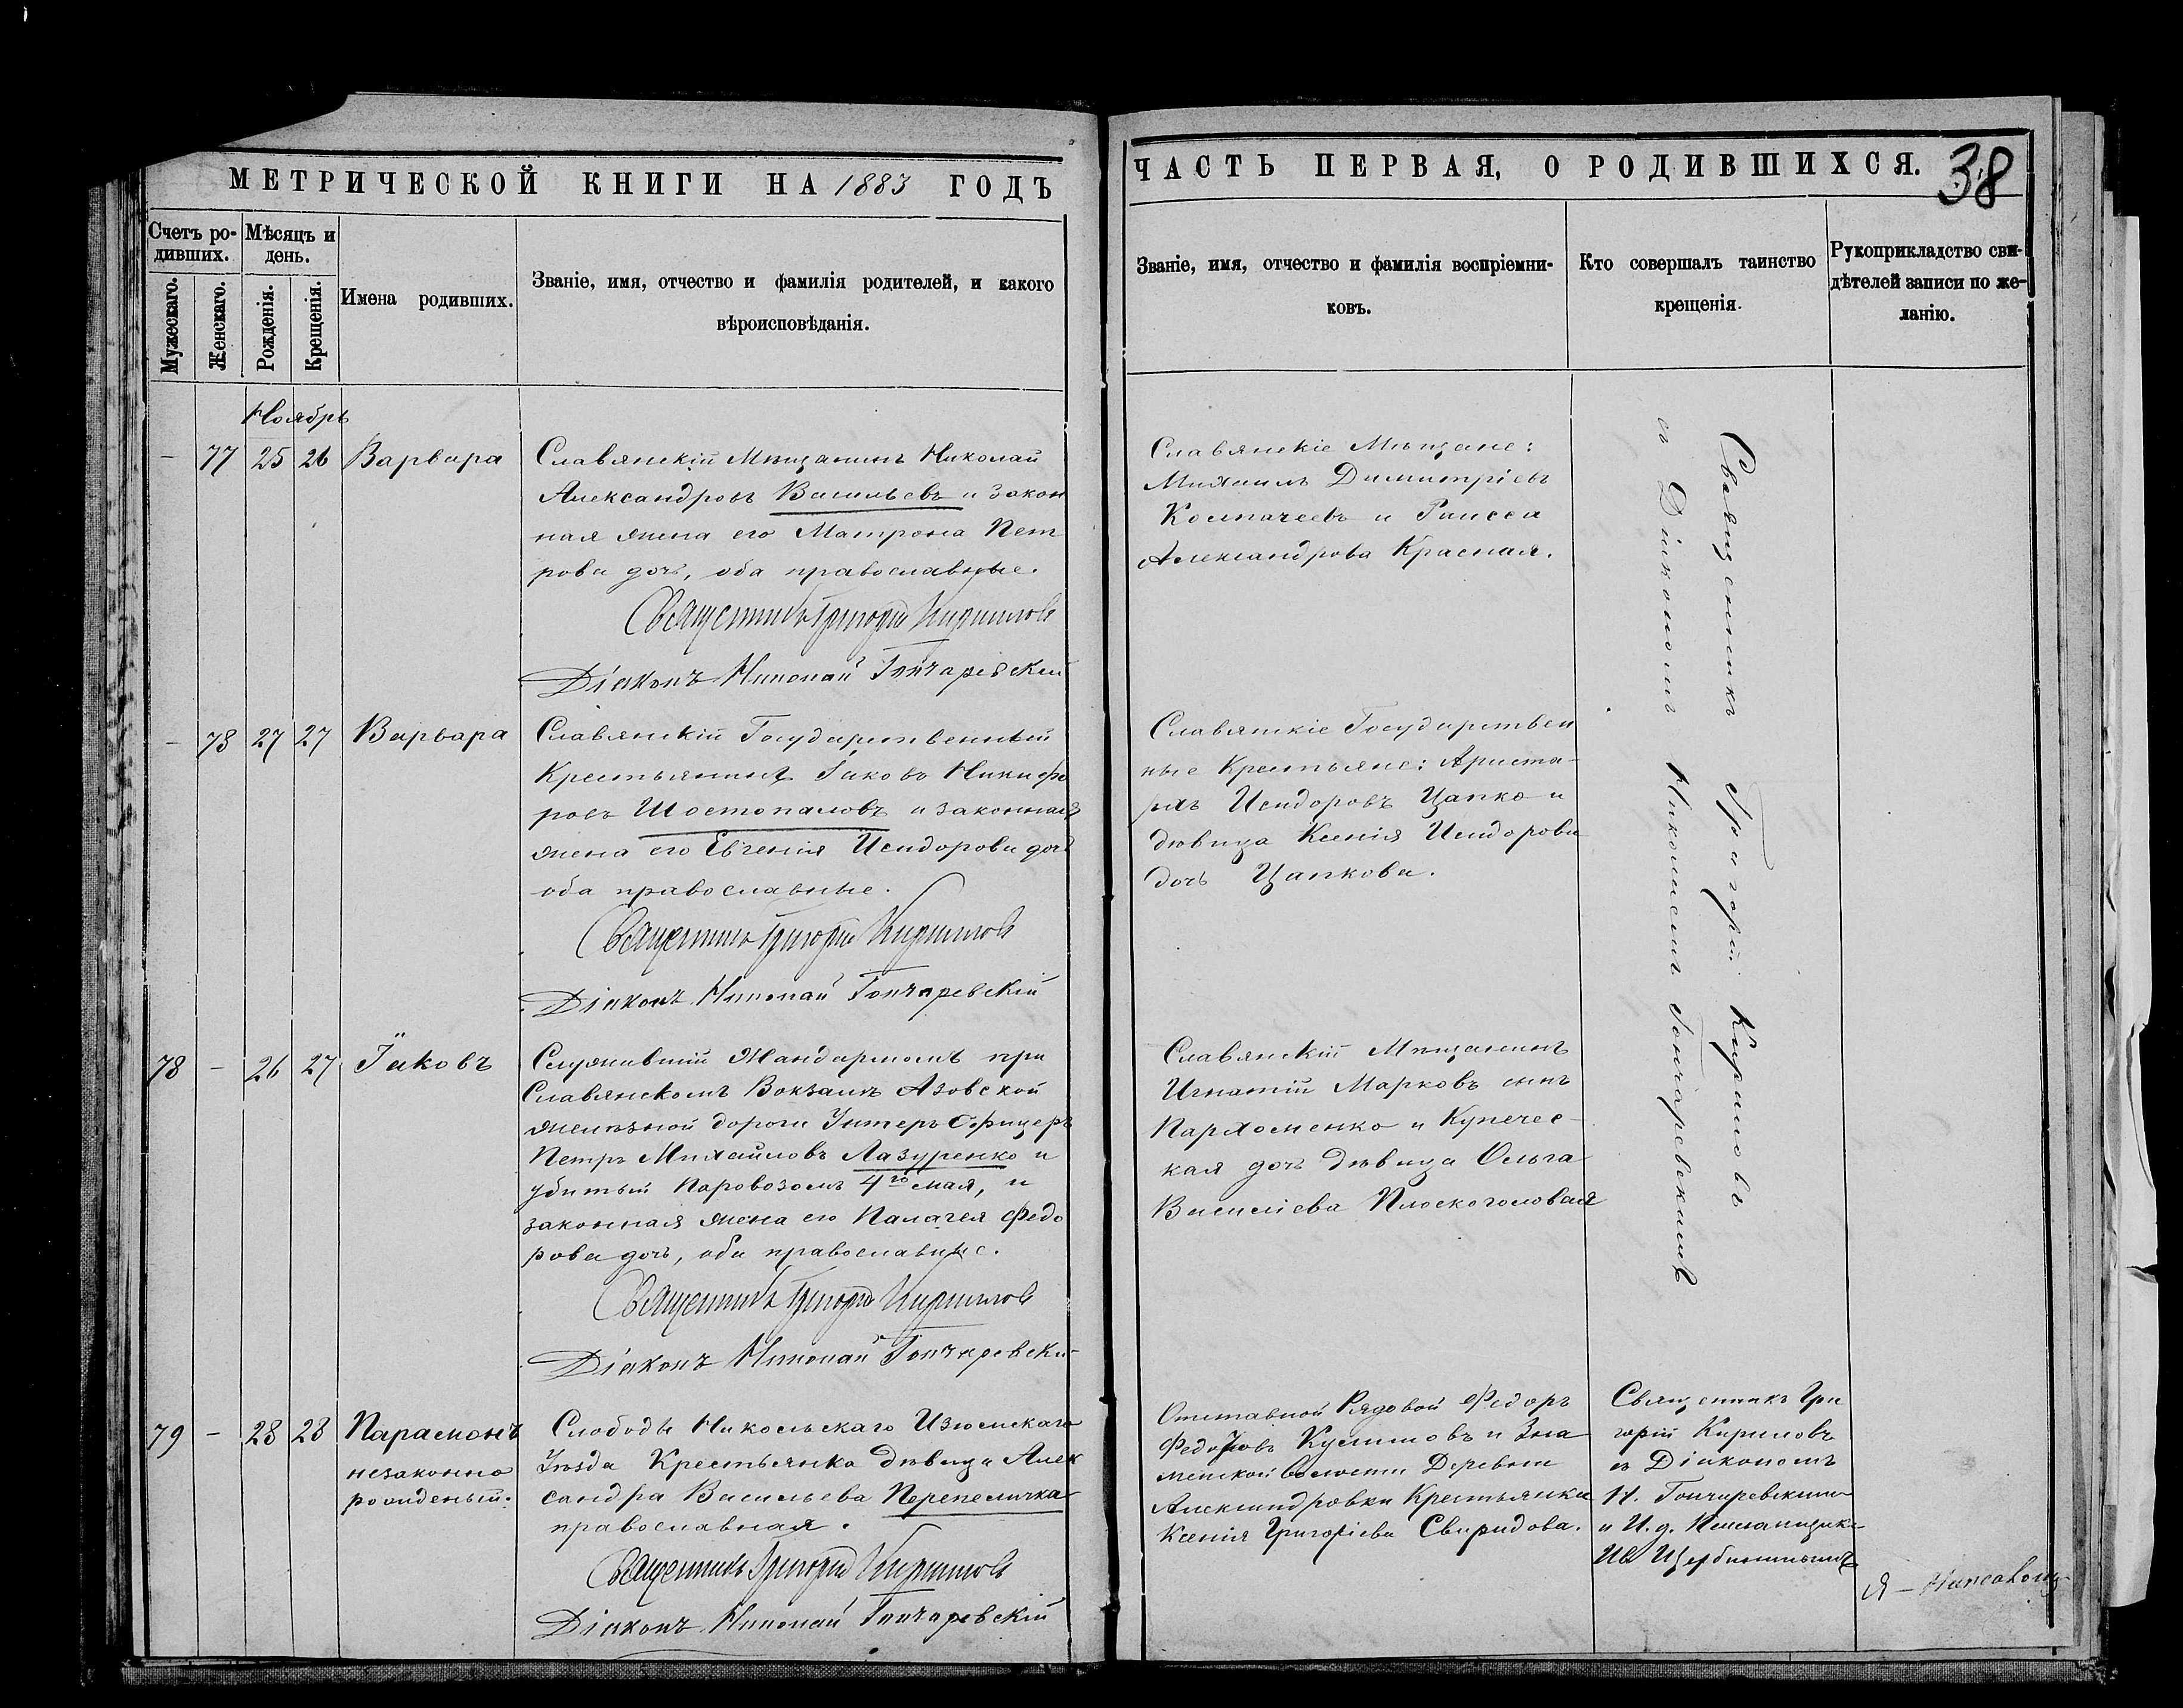 МЕТРИЧЕСКОЙ КНИГИ НА 1883 ГОДЪ
Счетъ ро-
дивших.
Мѣсяцъ и
день.
Мужескаго.
Женскаго.
Рожденія.
Крещенія.
Имена родивших.
Званіе, имя, отчество и фамилія родителей, и какого
вѣроисповѣданія.
Ноябрь
— 77 25 26 Варвара
Славянскій Мѣщанинъ Николай
Александровъ Васильевъ и закон
ная жена его Матрона Пет
рова дочь, оба православные.
Священникъ Григорій Кириловъ
Діаконъ Николай Гончаревскій
— 78 27 27 Варвара
Славянскій Государственный
Крестьянинъ Іаковъ Никифо
ровъ Шостопаловъ и законная
жена его Евгенія Исидорова дочь
оба православные.
Священникъ Григорій Кириловъ
Діаконъ Николай Гончаревскій
78 — 26 27 Іаковъ
Служившій Жандармомъ при
Славянскомъ Вокзалѣ Азовской
желѣзной дороги Унтеръ Офицеръ
Петръ Михайловъ Лазуренко и
убитый паровозомъ 4го мая, и
законная жена его Палагея Федо
рова дочь, оба православные.
Священникъ Григорій Кириловъ
Діаконъ Николай Гончаревскі
79 — 28 28 Парамонъ
незаконно
рожденый.
Слободы Никольскаго Изюмскаго
Уѣзда Крестьянка дѣвица Алек
сандра Васильева Перепеличка
православная.
Священникъ Григорій Кириловъ
Діаконъ Николай Гончаревскій
ЧАСТЬ ПЕРВАЯ, О РОДИВШИХСЯ. 38
Званіе, имя, отчество и фамилія воспріемни-
ковъ.
Кто совершалъ таинство
крещенія.
Рукоприкладство сви-
дѣтелей записи по же-
ланію.
Славянскіе Мѣщане:
Михаилъ Димитріевъ
и Раисса
Александрова Красная.
Славянскіе Государствен
ные Крестьяне: Ариста-
рхъ Исидоровъ Цапко и
дѣвица Ксенія Исидорова
дочь Цапкова.
Славянскій Мѣщанинъ
Игнатій Марковъ сынъ
Пархоменко и Купечес-
кая дочь дѣвица Ольга
Василіева Плоскоголовая
Отставной Рядовой Федоръ
Федоровъ и Зна
менской волости Деревни
Александровки Крестьянка
Ксенія Григоріева Свиридова.
Священникъ Григорій Кириловъ
съ Діакономъ Николаемъ Гончаревскимъ
Священникъ Гри
горій Кириловъ
съ Діакономъ
Н. Гончаревскимъ
и И. д. Псаломщика
Ив Щербининымъ